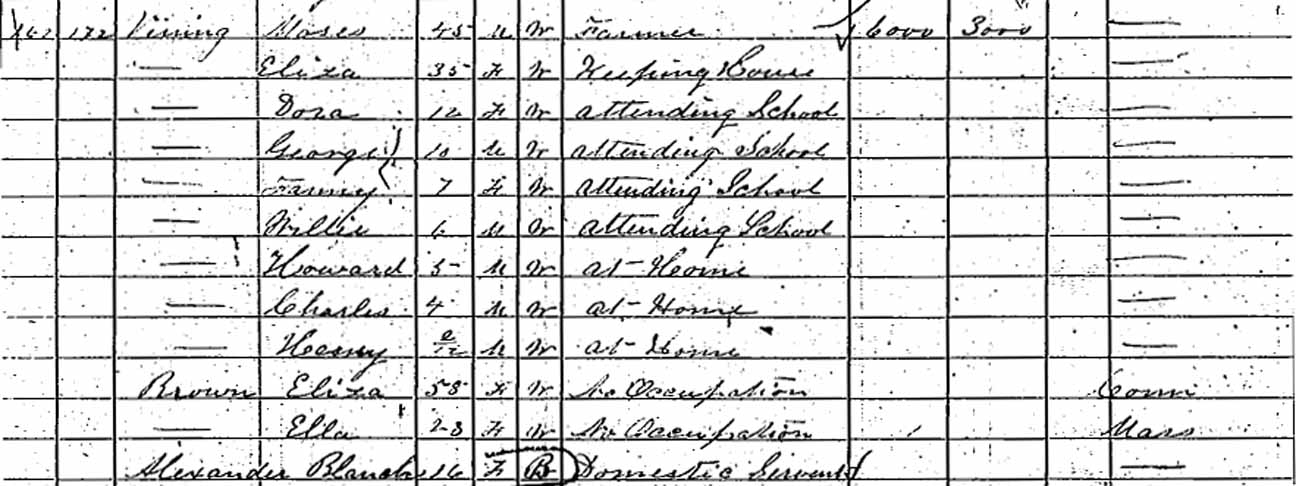 162 172 Vining Moses 45 M W Farmer 6000 3000 —
— Eliza 35 F W Keeping House —
— Dora 12 F W attending School —
— George 10 M W attending School —
— Fanny 7 F W attending School —
— Willie 6 M W attending School —
— Howard 5 M W at Home —
— Charles 4 M W at Home —
— Henry /12 M W at Home —
Brown Eliza 58 F W No Occupation Conn
— Ella 28 F W No Occupation Mass
Alexander Blanch 16 F B Domestic Servant —